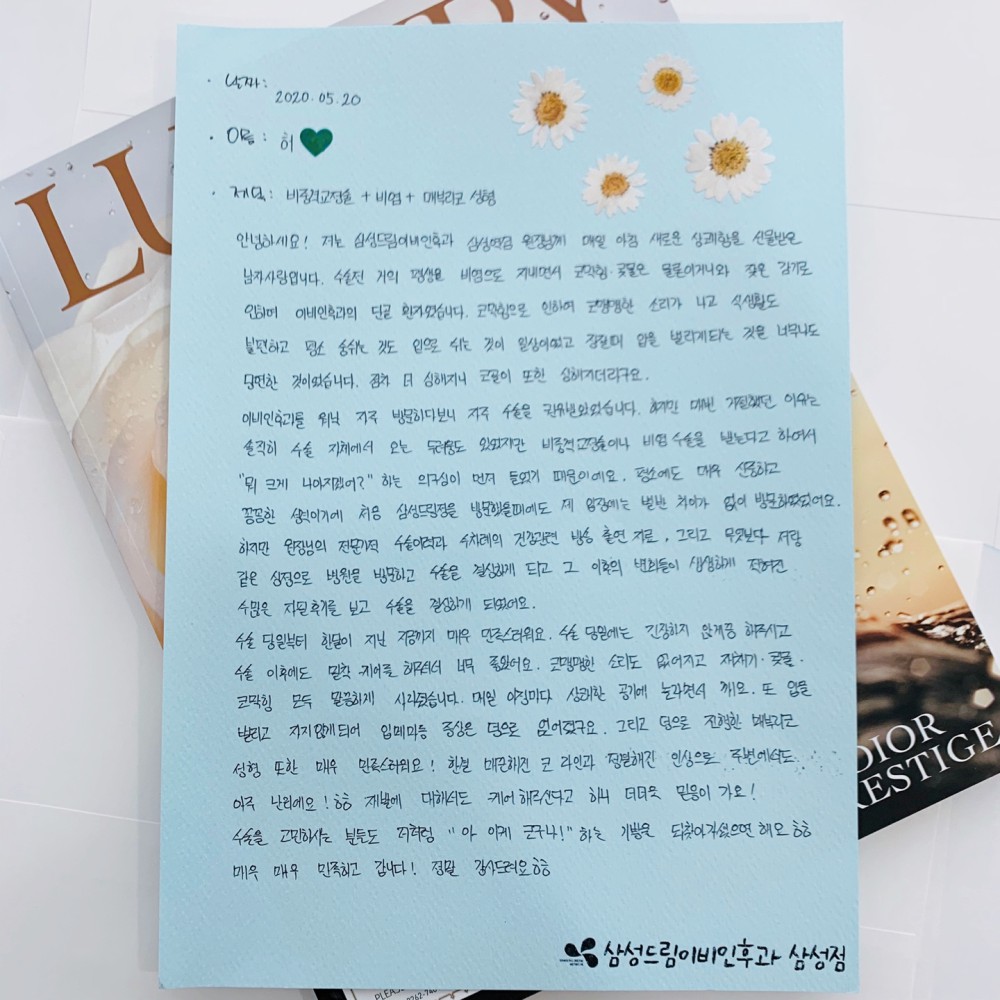 LU
· 날짜:
2020.05.20
· 이름: 허
· 제목: 비중격교정술 + 비염 + 매부리코 성형
안녕하세요! 저는 삼성드림이비인후과 삼성역점 원장님께 매일 아침 새로운 상쾌함을 선물받은
남자사람입니다. 수술전 거의 평생을 비염으로 지내면서 코막힘·콧물은 물론이거니와 잦은 감기로
인하여 이비인후과의 단골 환자였습니다. 코막힘으로 인하여 코맹맹한 소리가 나고 식생활도
불편하고 평소 숨쉬는 것도 입으로 쉬는 것이 일상이었고 잠잘때 입을 벌리게되는 것은 너무나도
당연한 것이었습니다. 점차 더 심해지니 코골이 또한 심해지더라구요.
이비인후과를 워낙 자주 방문하다보니 자주 수술을 권유받았었습니다. 하지만 매번 거절했던 이유는
솔직히 수술 자체에서 오는 두려움도 있었지만 비중격교정술이나 비염수술을 받는다고 하여서
"뭐 크게 나아지겠어?" 하는 의구심이 먼저 들었기 때문이에요. 평소에도 매우 신중하고
꼼꼼한 성격이기에 처음 삼성드림점을 방문했을때에도 제 입장에는 별반 차이가 없이 방문하였었어요.
하지만 원장님의 전문가적 수술이력과 수차례의 건강관련 방송 출연 자료, 그리고 무엇보다 저랑
같은 심정으로 병원을 방문하고 수술을 결심하게 되고 그 이후의 변화들이 생생하게 적혀진
수많은 자필후기를 보고 수술을 결심하게 되었어요.
수술 당일부터 한달이 지난 지금까지 매우 만족스러워요. 수술 당일에는 긴장하지 않게끔 해주시고
수술 이후에도 밀착 케어를 해주셔서 너무 좋았어요. 코맹맹한 소리도 없어지고 재채기·콧물·
코막힘 모두 말끔하게 사라졌습니다. 매일 아침마다 상쾌한 공기에 놀라면서 깨요. 또 입을
벌리고 자지않게되어 입메마름 증상은 덤으로 없어졌구요. 그리고 덤으로 진행한 매부리코
성형 또한 매우 만족스러워요! 한결 매끈해진 코 라인과 정돈해진 인상으로 주변에서도
아주 난리에요! ㅎㅎ 재발에 대해서도 케어해주신다고 하니 더더욱 믿음이 가요!
수술을 고민하시는 분들도 저처럼 "아 이게 코구나!" 하는 기쁨을 되찾아가셨으면 해요 ㅎㅎ
매우 매우 만족하고 갑니다! 정말 감사드려요 ㅎㅎ
DIOR
PRESTIGE
삼성드림이비인후과 삼성점